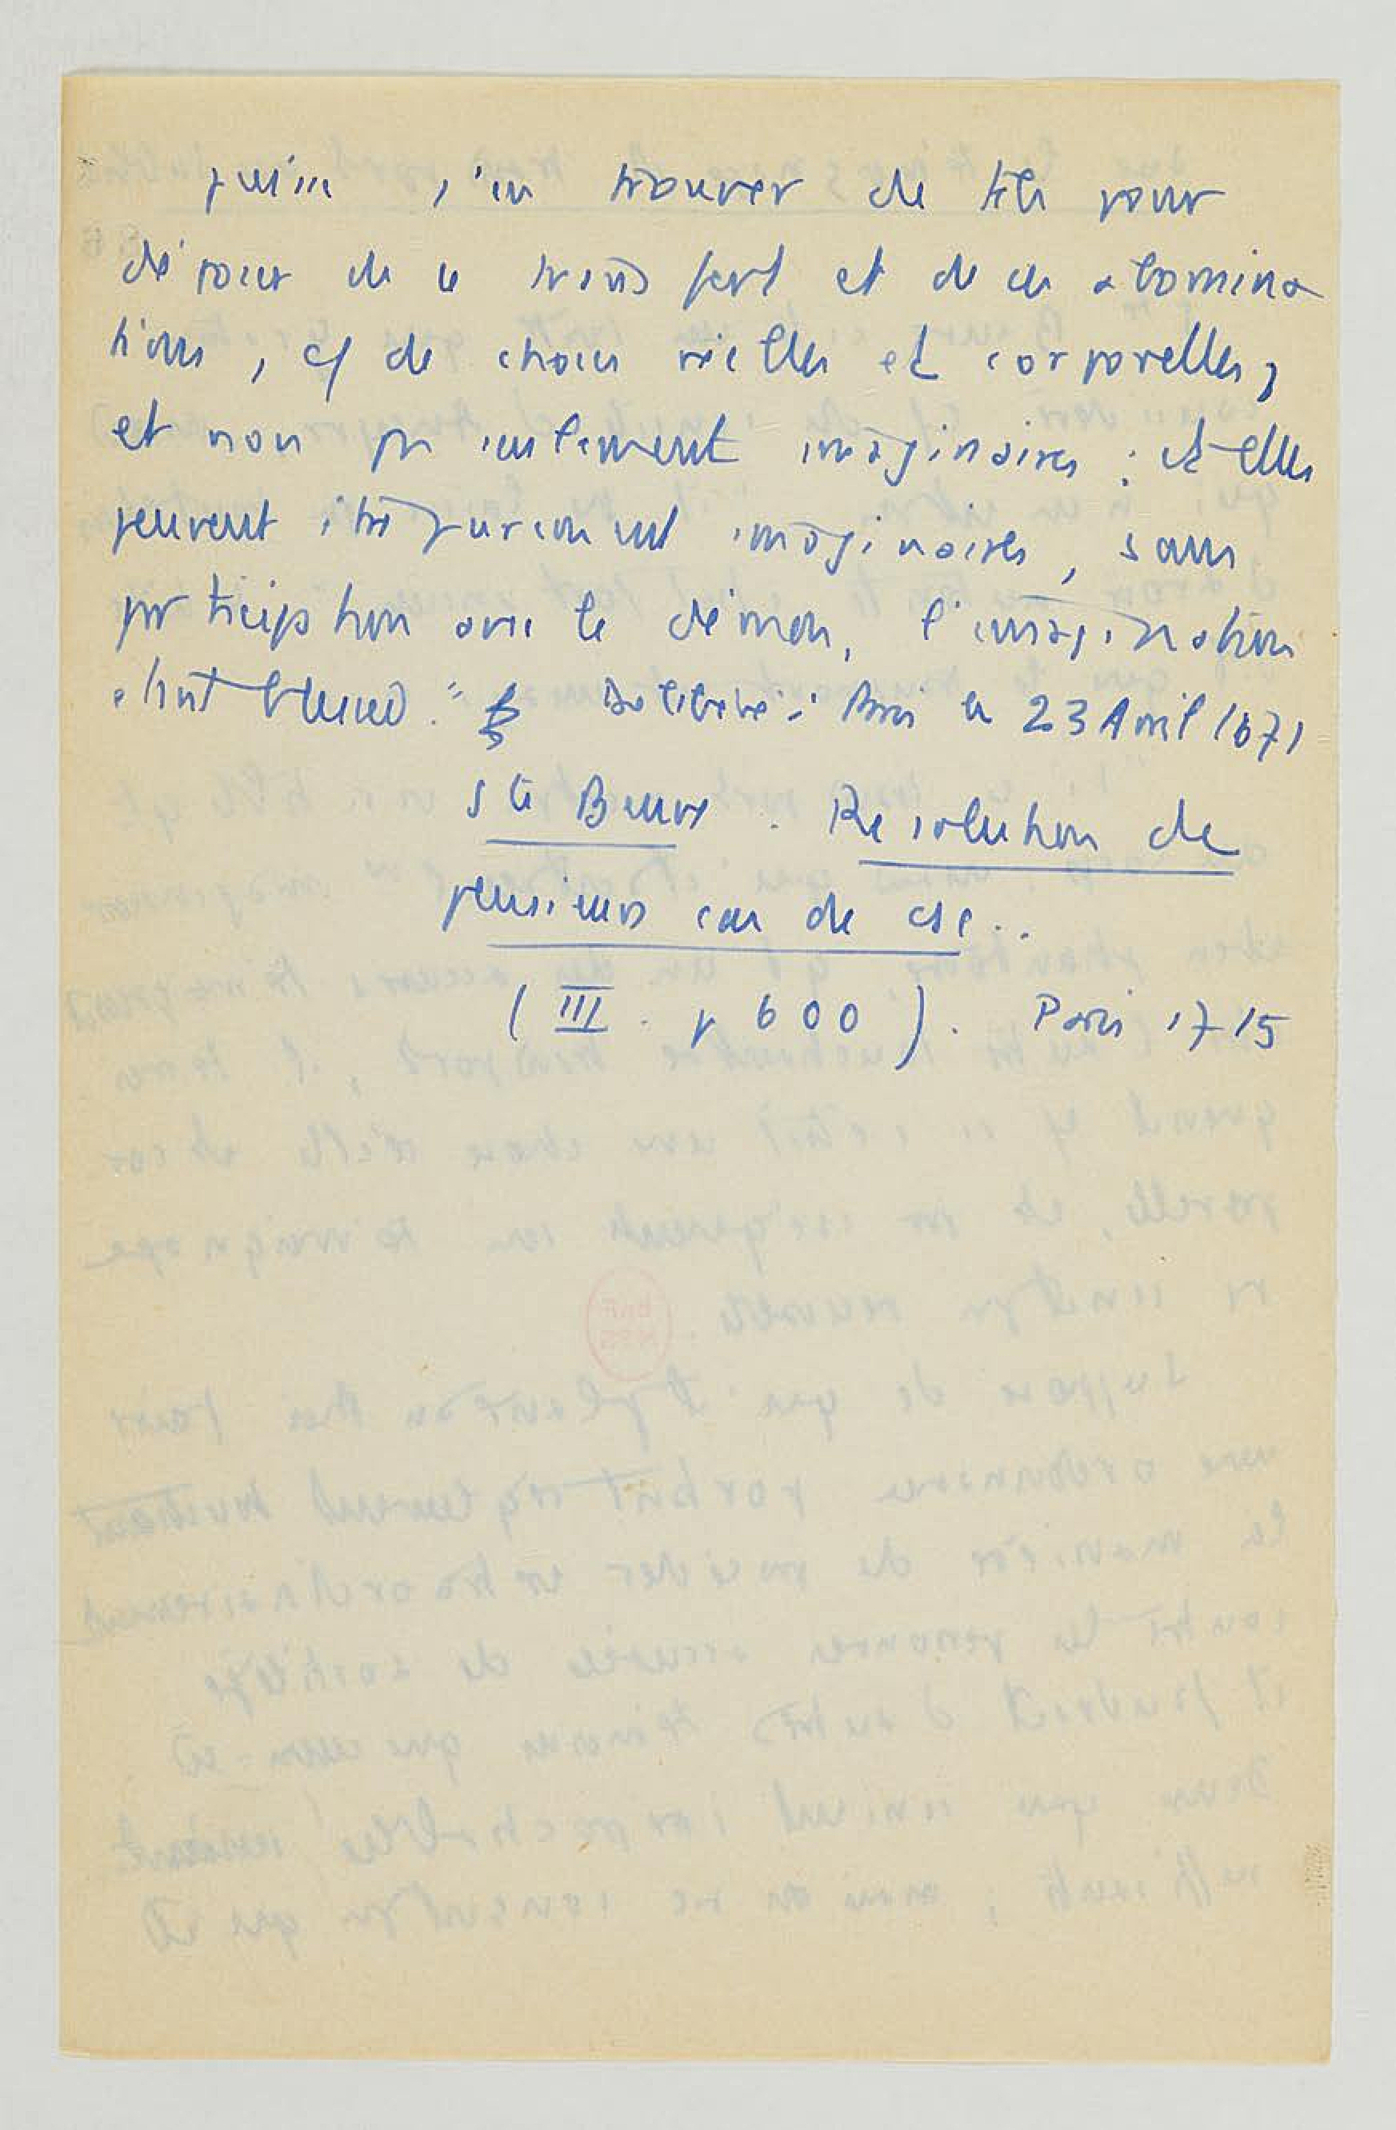 puisse s'en trouver de tels pour
déposer de ce transport et de ces abomina
tions, cf de choses réelles et corporelles,
et non pas seulement imaginaires ; et elles
peuvent être purement imaginaires, sans
participation avec le démon, l'imagination
étant blessée." Délibéré à Paris le 23 Avril 1671
Ste Beuve. Résolution de
plusieurs cas de csc..
(III. p 600). Paris 1715